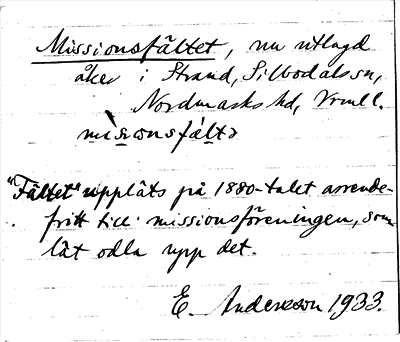 Missionsfältet, nu utlagd
åker i Strand, Silbodals sn,
Nordmarks hd, Vrml.
misonsfält
"Fältet" uppläts på 1880-talet arrende-
fritt till missionsföreningen, som
lät odla upp det.
E. Anderson 1933.